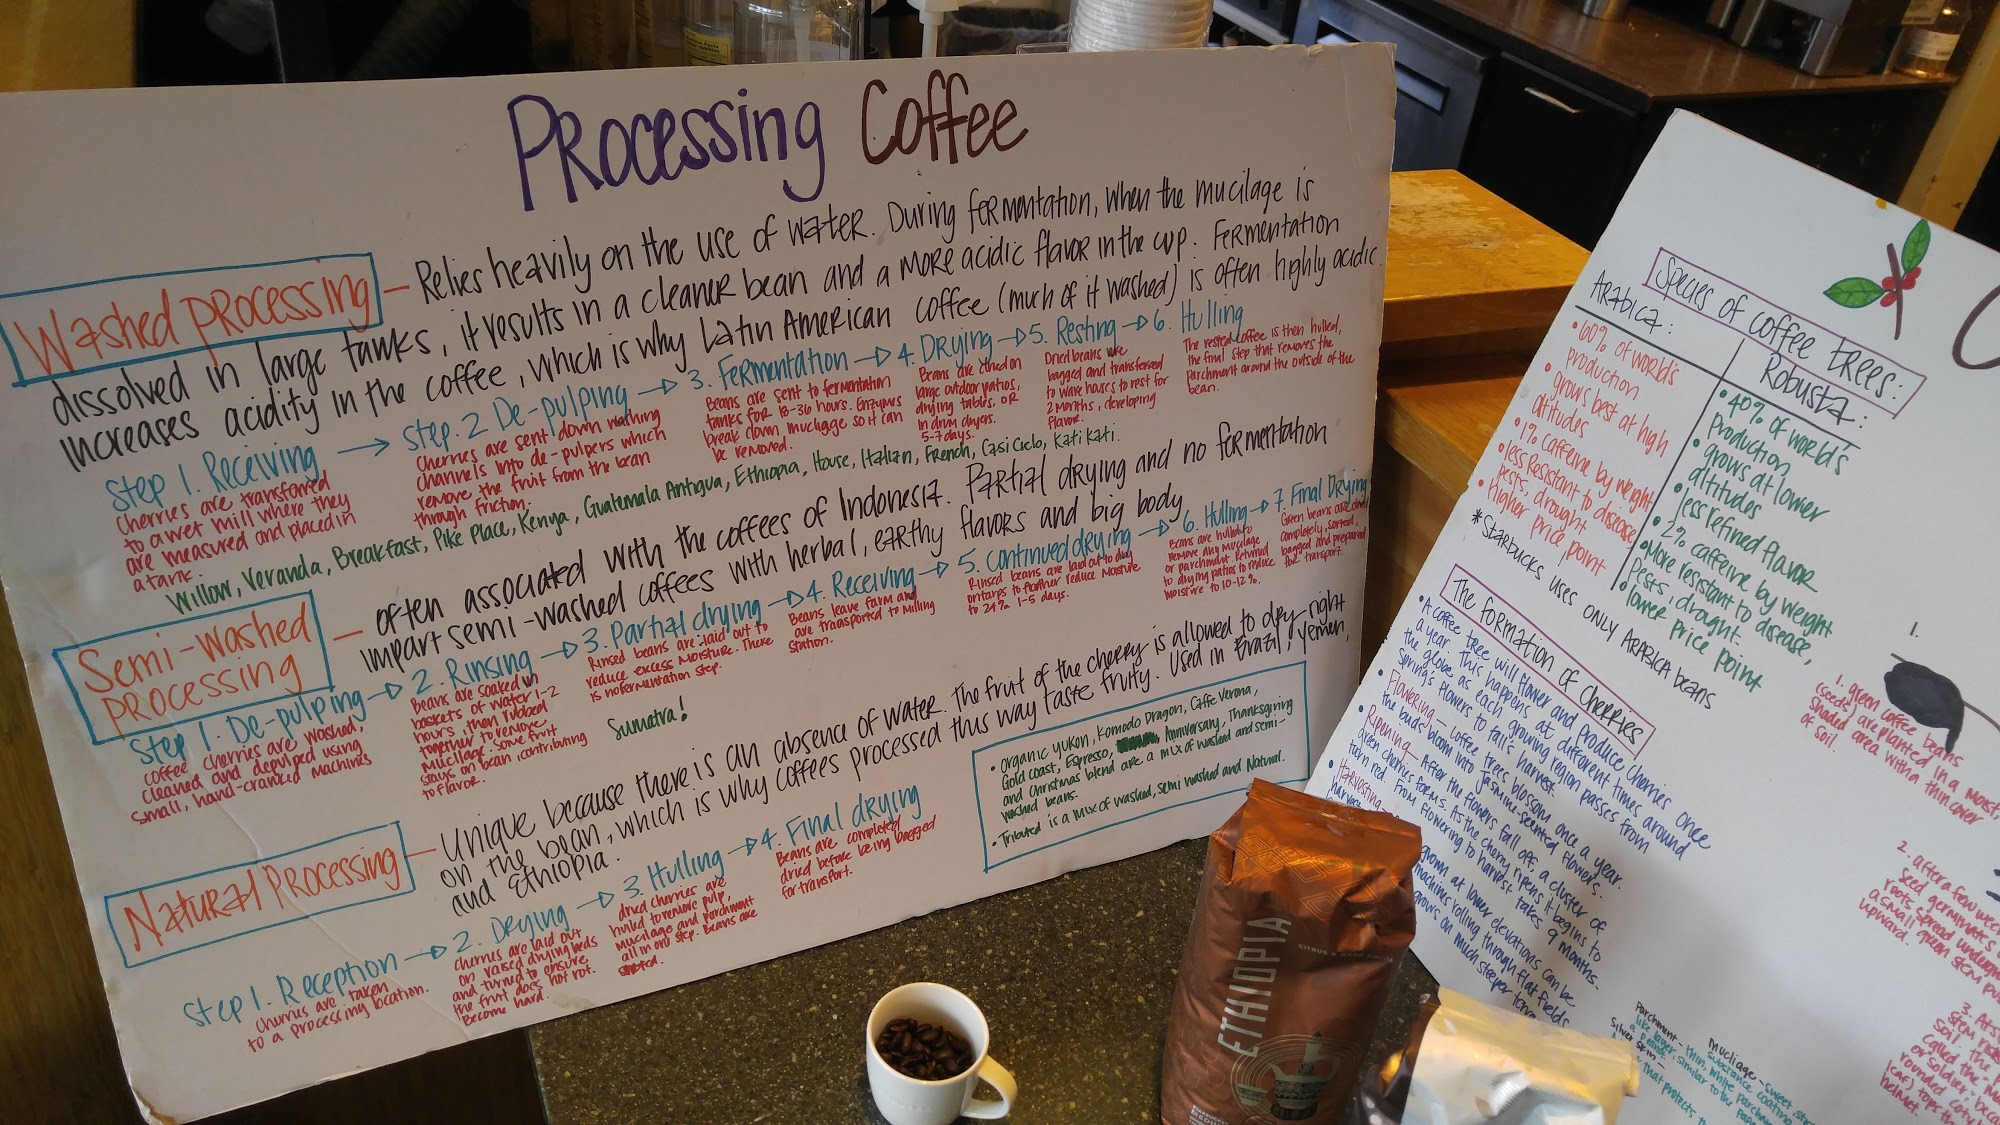 Processing Coffee
Washed processing — Relies heavily on the use of water. During fermentation, when the mucilage is
dissolved in large tanks, it results in a cleaner bean and a more acidic flavor in the cup. Fermentation
increases acidity in the coffee, which is why Latin American coffee (much of it washed) is often highly acidic.
Step 1. Receiving → Step. 2 De-pulping → 3. Fermentation → 4. Drying → 5. Resting → 6. Hulling
Cherries are transferred
to a wet mill where they
are measured and placed in
a tank.
Cherries are sent down washing
channels into de-pulpers which
remove the fruit from the bean
through friction.
Beans are sent to fermentation
tanks for 18-36 hours. Enzymes
break down mucliage so it can
be removed.
Beans are dried on
large outdoor patios,
drying tables, or
in drum dryers.
5-7 days.
Dried beans are
bagged and transferred
to warehouses to rest for
2 months, developing
flavor.
The rested coffee is then hulled,
the final step that removes the
parchment around the outside of the
bean.
Willow, Veranda, Breakfast, Pike Place, Kenya, Guatemala Antigua, Ethiopia, House, Italian, French, Casi Cielo, Kati Kati.
Semi-washed
processing — often associated with the coffees of Indonesia. Partial drying and no fermentation
impart semi-washed coffees with herbal, earthy flavors and big body
Step 1. De-pulping → 2. Rinsing → 3. Partial drying → 4. Receiving → 5. Continued drying → 6. Hulling → 7. Final Drying
coffee cherries are washed,
cleaned and depulped using
small, hand-cranked machines
Beans are soaked in
baskets of water 1-2
hours, then rubbed
together to remove
mucilage. Some fruit
stays on bean contributing
to flavor.
Rinsed beans are laid out to
reduce excess moisture. There
is no fermentation step.
Beans leave farm and
are transported to milling
station.
Rinsed beans are laid out to dry
on tarps to further reduce moisture
to 24% 1-5 days.
Beans are hulled to
remove any mucilage
or parchment. Returned
to drying patios to reduce
moisture to 10-12%.
Green beans are dried
completely, sorted,
bagged and prepared
for transport.
Sumatra!
Natural Processing — Unique because there is an absence of water. The fruit of the cherry is allowed to dry right
on the bean, which is why coffees processed this way taste fruity. Used in Brazil, Yemen,
and Ethiopia.
Step 1. Reception → 2. Drying → 3. Hulling → 4. Final drying
Cherries are taken
to a processing location.
cherries are laid out
on raised drying beds
and turned to ensure
the fruit does not rot.
Become hard.
dried cherries are
hulled to remove pulp,
mucilage and parchment
all in one step. Beans are
Beans are completed
dried before being bagged
for transport.
• Organic Yukon, Komodo Dragon, Caffe Verona,
Gold coast, Espresso, Anniversary, Thanksgiving
and Christmas blend are a mix of washed and semi-
washed beans.
• Tributed is a mix of washed, semi washed and Natural.
ETHIOPIA
Species of coffee trees:
Arabica:
• 60% of world's
production
• grows best at high
altitudes
• 1% caffeine by weight
• less resistant to disease
pests, drought
• higher price point
Robusta:
• 40% of world's
production
• grows at lower
altitudes
• less refined flavor
• 2% caffeine by weight
• More resistant to disease,
pests, drought.
• lower price point
* Starbucks uses only Arabica beans
The formation of cherries
• A coffee tree will flower and produce cherries once
a year. This happens at different times around
the globe as each growing region passes from
spring's flowers to fall's harvest.
• Flowering - coffee trees blossom once a year.
the buds bloom into Jasmine scented flowers.
• Ripening - After the flowers fall off, a cluster of
green cherries forms. As the cherry ripens, it begins to
turn red. From flowering to harvest takes 9 months.
• Harvesting
grown at lower elevations can be
machines rolling through flat fields
grows on much steeper
1.
1. green coffee beans
(seeds) are planted in a moist,
shaded area with a thin cover
of soil.
2. after a few weeks
seed germinates
roots spread
a small green stem
upward.